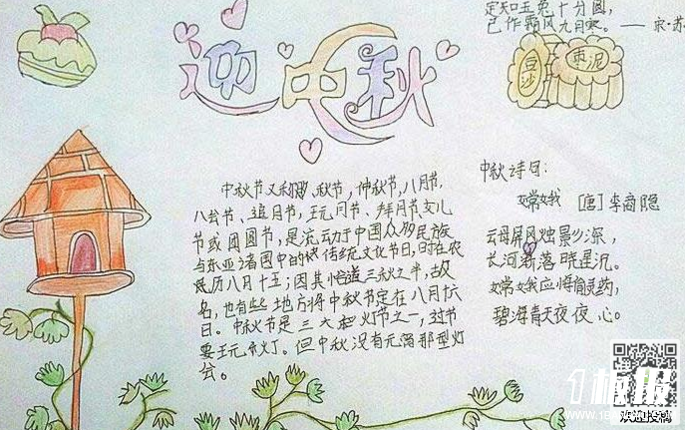 定知玉兔十分圆,
已作霜风九月寒。——宋·苏
迎中秋
豆沙
枣泥
中秋节又称 秋节,仲秋节,八月节,
八 节、追月节,玩月节、拜月节女儿
节或团圆节,是流行于中国众多民族
与东亚诸国中的 传统文化节日,时在农
历八月十五;因其恰 三秋之半,故
名,也有些地方将中秋节定在八月十六
日。中秋节是三大 灯节之一,过节
要玩 灯。但中秋没有元宵那型灯
会。
中秋诗句:
嫦娥 [唐]李商隐
云母屏风烛影深,
长河渐落晓星沉。
嫦娥应悔偷灵药,
碧海青天夜夜心。
1板报
欢迎投稿